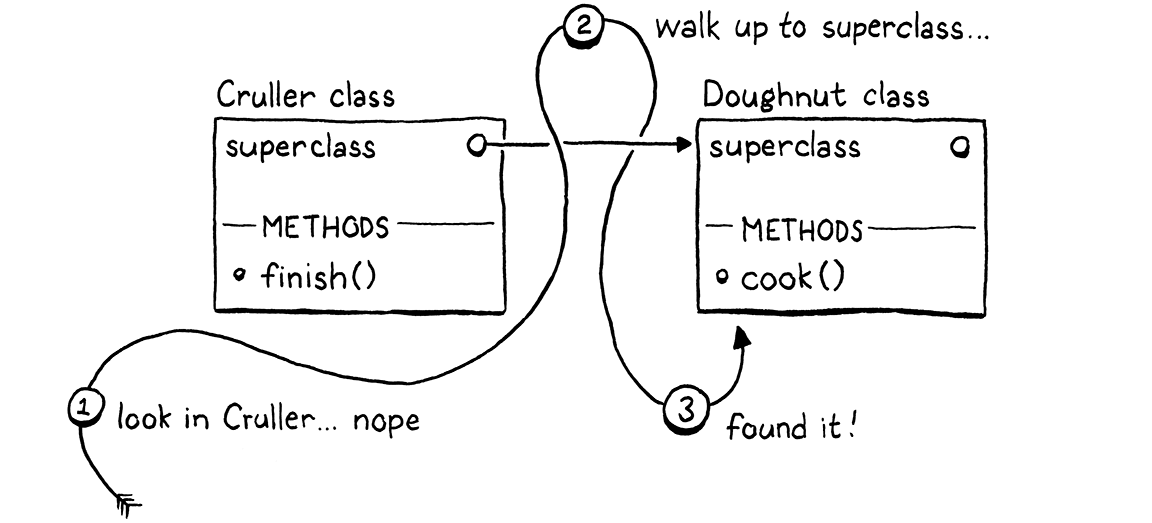 2
walk up to superclass...
Cruller class
superclass
METHODS
finish()
Doughnut class
superclass
METHODS
cook()
1
look in Cruller... nope
3
found it!